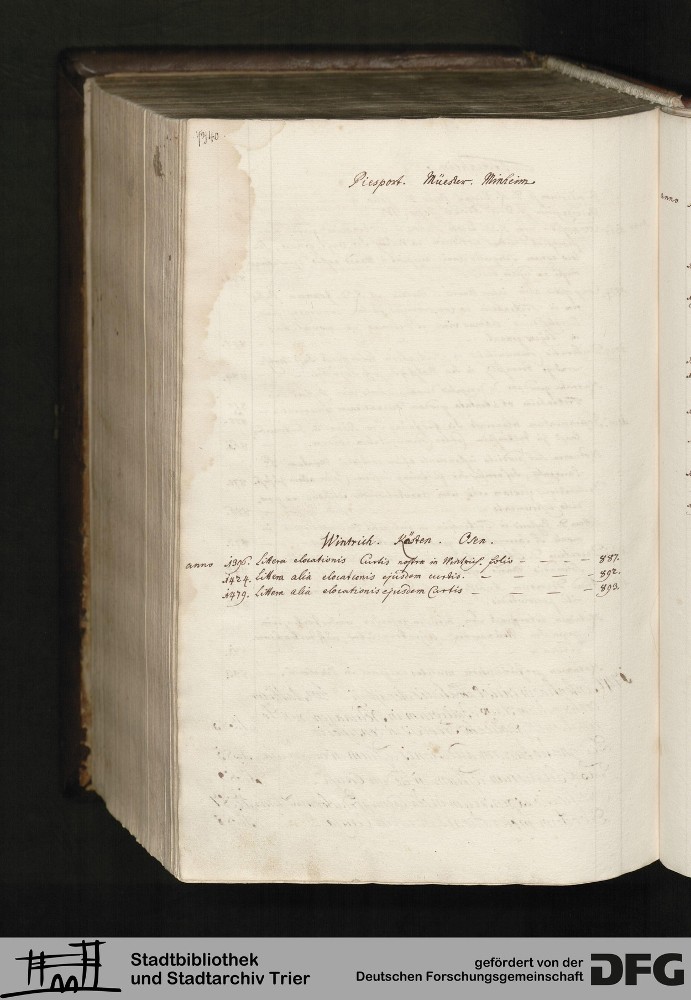 1340.
Piesport. Müester. Minheim
Wintrich. Kästen. Osen.
anno 1396. Littera elocationis Curtis nostræ in Wintrich. folio - - - - 887.
1424. Littera alia elocationis ejusdem curtis. - - - - 892.
1479. Littera alia elocationis ejusdem Curtis - - - - 893.
anno
Stadtbibliothek
und Stadtarchiv Trier
gefördert von der
Deutschen Forschungsgemeinschaft
DFG